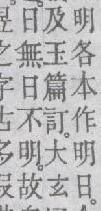 明各本作明日。
及玉篇訂。大玄
日無日不明。故
昱之字古多叚